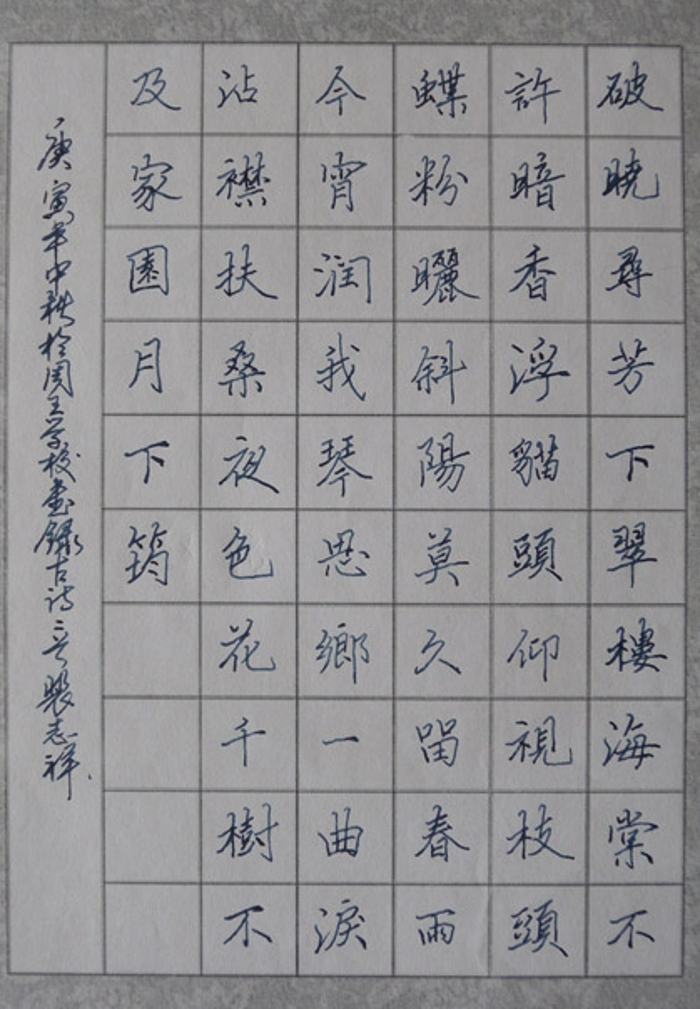 破曉尋芳下翠樓海棠不
許暗香浮貓頭仰視枝頭
蝶粉曬斜陽莫久留春雨
今宵润我琴思鄉一曲淚
沾襟扶桑夜色花千樹不
及家園月下筠
庚寅年中秋於周王学校画録古诗三首裴志祥